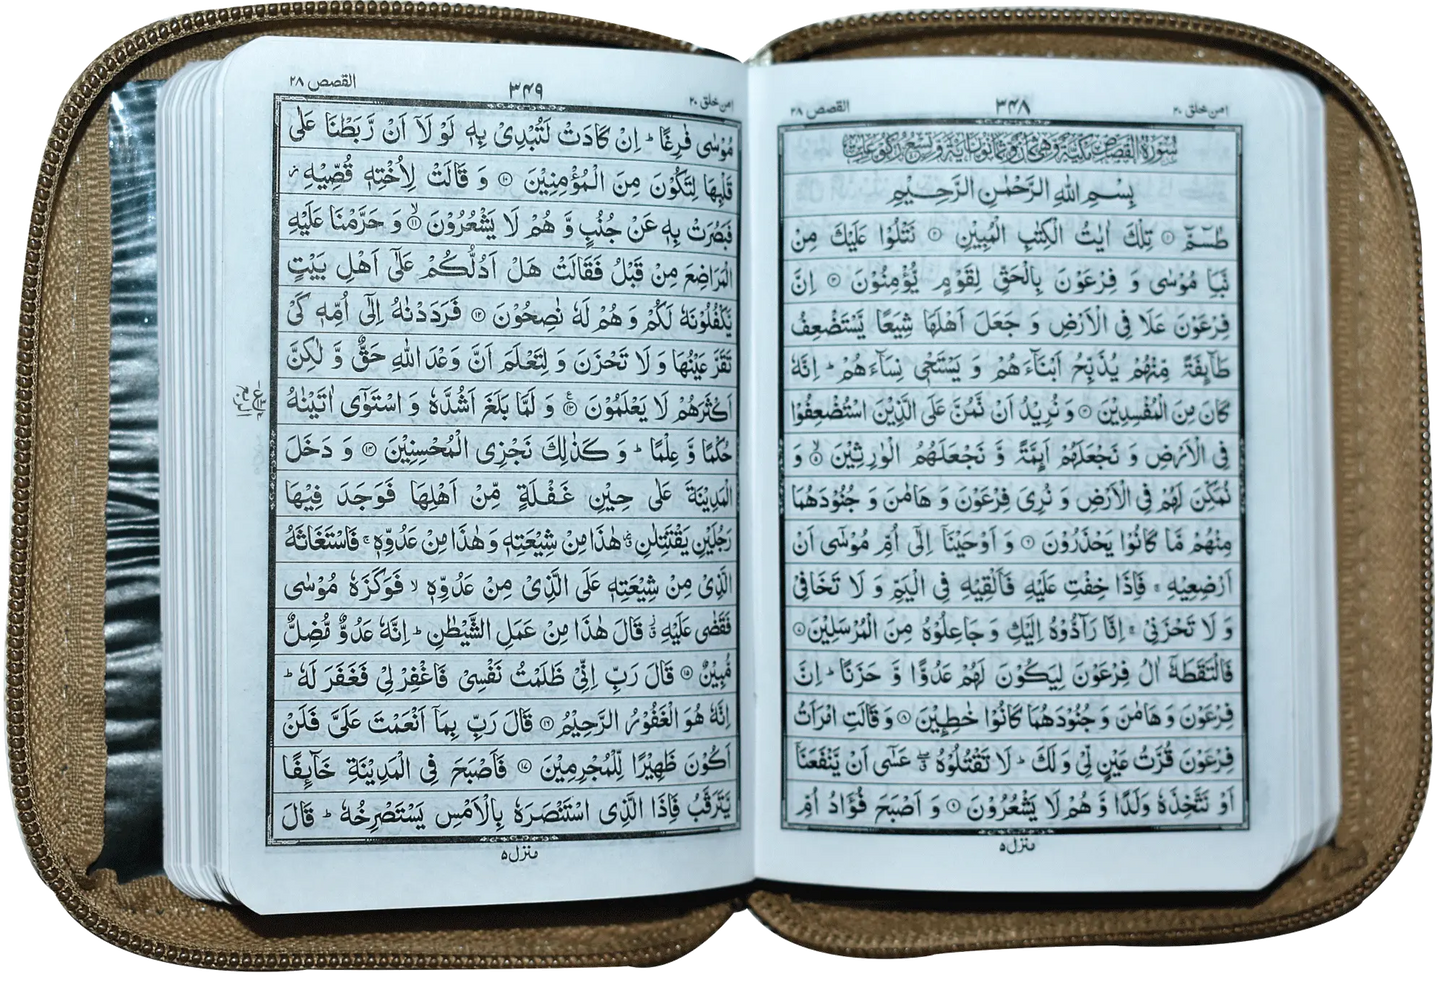 امن خلق ٢٠
٣٤٨
القصص ٢٨
سُوْرَةُ الْقَصَصِ مَكِّيَّةٌ وَّهِيَ ثَمَانٌ وَّثَمَانُوْنَ اٰيَةً وَّتِسْعُ رُكُوْعَاتٍ
بِسْمِ اللهِ الرَّحْمٰنِ الرَّحِيْمِ
طٰسٓمّٓ ۝١ تِلْكَ اٰيٰتُ الْكِتٰبِ الْمُبِيْنِ ۝٢ نَتْلُوْا عَلَيْكَ مِنْ
نَّبَاِ مُوْسٰى وَ فِرْعَوْنَ بِالْحَقِّ لِقَوْمٍ يُّؤْمِنُوْنَ ۝٣ اِنَّ
فِرْعَوْنَ عَلَا فِى الْاَرْضِ وَ جَعَلَ اَهْلَهَا شِيَعًا يَّسْتَضْعِفُ
طَآئِفَةً مِّنْهُمْ يُذَبِّحُ اَبْنَآءَهُمْ وَ يَسْتَحْيٖ نِسَآءَهُمْ ؕ اِنَّهٗ
كَانَ مِنَ الْمُفْسِدِيْنَ ۝٤ وَ نُرِيْدُ اَنْ نَّمُنَّ عَلَى الَّذِيْنَ اسْتُضْعِفُوْا
فِى الْاَرْضِ وَ نَجْعَلَهُمْ اَئِمَّةً وَّ نَجْعَلَهُمُ الْوٰرِثِيْنَ ۝٥ۙ وَ
نُمَكِّنَ لَهُمْ فِى الْاَرْضِ وَ نُرِيَ فِرْعَوْنَ وَ هَامٰنَ وَ جُنُوْدَهُمَا
مِنْهُمْ مَّا كَانُوْا يَحْذَرُوْنَ ۝٦ وَ اَوْحَيْنَآ اِلٰٓى اُمِّ مُوْسٰٓى اَنْ
اَرْضِعِيْهِ ۚ فَاِذَا خِفْتِ عَلَيْهِ فَاَلْقِيْهِ فِى الْيَمِّ وَ لَا تَخَافِيْ
وَ لَا تَحْزَنِيْ ۚ اِنَّا رَآدُّوْهُ اِلَيْكِ وَ جَاعِلُوْهُ مِنَ الْمُرْسَلِيْنَ ۝٧
فَالْتَقَطَهٗٓ اٰلُ فِرْعَوْنَ لِيَكُوْنَ لَهُمْ عَدُوًّا وَّ حَزَنًا ؕ اِنَّ
فِرْعَوْنَ وَ هَامٰنَ وَ جُنُوْدَهُمَا كَانُوْا خٰطِـِٕيْنَ ۝٨ وَ قَالَتِ امْرَاَتُ
فِرْعَوْنَ قُرَّتُ عَيْنٍ لِّيْ وَ لَكَ ؕ لَا تَقْتُلُوْهُ ۖۗ عَسٰٓى اَنْ يَّنْفَعَنَآ
اَوْ نَتَّخِذَهٗ وَلَدًا وَّ هُمْ لَا يَشْعُرُوْنَ ۝٩ وَ اَصْبَحَ فُؤَادُ اُمِّ
منزل ٥
امن خلق ٢٠
٣٤٩
القصص ٢٨
مُوْسٰى فٰرِغًا ؕ اِنْ كَادَتْ لَتُبْدِيْ بِهٖ لَوْ لَآ اَنْ رَّبَطْنَا عَلٰى
قَلْبِهَا لِتَكُوْنَ مِنَ الْمُؤْمِنِيْنَ ۝١٠ وَ قَالَتْ لِاُخْتِهٖ قُصِّيْهِ ؗ
فَبَصُرَتْ بِهٖ عَنْ جُنُبٍ وَّ هُمْ لَا يَشْعُرُوْنَ ۝١١ۙ وَ حَرَّمْنَا عَلَيْهِ
الْمَرَاضِعَ مِنْ قَبْلُ فَقَالَتْ هَلْ اَدُلُّكُمْ عَلٰٓى اَهْلِ بَيْتٍ
يَّكْفُلُوْنَهٗ لَكُمْ وَ هُمْ لَهٗ نٰصِحُوْنَ ۝١٢ فَرَدَدْنٰهُ اِلٰٓى اُمِّهٖ كَيْ
تَقَرَّ عَيْنُهَا وَ لَا تَحْزَنَ وَ لِتَعْلَمَ اَنَّ وَعْدَ اللهِ حَقٌّ وَّ لٰكِنَّ
اَكْثَرَهُمْ لَا يَعْلَمُوْنَ ۝١٣ وَ لَمَّا بَلَغَ اَشُدَّهٗ وَ اسْتَوٰٓى اٰتَيْنٰهُ
حُكْمًا وَّ عِلْمًا ؕ وَ كَذٰلِكَ نَجْزِى الْمُحْسِنِيْنَ ۝١٤ وَ دَخَلَ
الْمَدِيْنَةَ عَلٰى حِيْنِ غَفْلَةٍ مِّنْ اَهْلِهَا فَوَجَدَ فِيْهَا
رَجُلَيْنِ يَقْتَتِلٰنِ ۖؗ هٰذَا مِنْ شِيْعَتِهٖ وَ هٰذَا مِنْ عَدُوِّهٖ ۚ فَاسْتَغَاثَهُ
الَّذِيْ مِنْ شِيْعَتِهٖ عَلَى الَّذِيْ مِنْ عَدُوِّهٖ ۙ فَوَكَزَهٗ مُوْسٰى
فَقَضٰى عَلَيْهِ ؗۖ قَالَ هٰذَا مِنْ عَمَلِ الشَّيْطٰنِ ؕ اِنَّهٗ عَدُوٌّ مُّضِلٌّ
مُّبِيْنٌ ۝١٥ قَالَ رَبِّ اِنِّيْ ظَلَمْتُ نَفْسِيْ فَاغْفِرْ لِيْ فَغَفَرَ لَهٗ ؕ
اِنَّهٗ هُوَ الْغَفُوْرُ الرَّحِيْمُ ۝١٦ قَالَ رَبِّ بِمَآ اَنْعَمْتَ عَلَيَّ فَلَنْ
اَكُوْنَ ظَهِيْرًا لِّلْمُجْرِمِيْنَ ۝١٧ فَاَصْبَحَ فِى الْمَدِيْنَةِ خَآئِفًا
يَّتَرَقَّبُ فَاِذَا الَّذِى اسْتَنْصَرَهٗ بِالْاَمْسِ يَسْتَصْرِخُهٗ ؕ قَالَ
منزل ٥